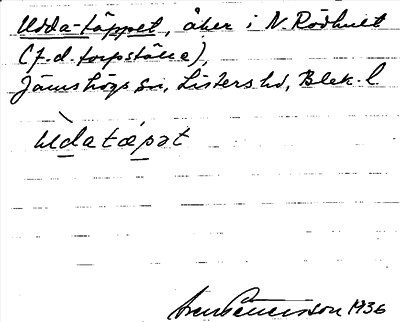 Udda-täppet, åker i N. Rödhult
(f.d. torpställe),
Jämshögs sn, Listers hd, Blek. l
ùdatæpət
1936